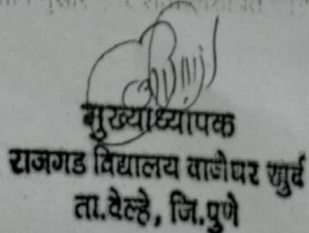 मुख्याध्यापक
राजगड विद्यालय वाजेघर खुर्द
ता.वेल्हे, जि.पुणे